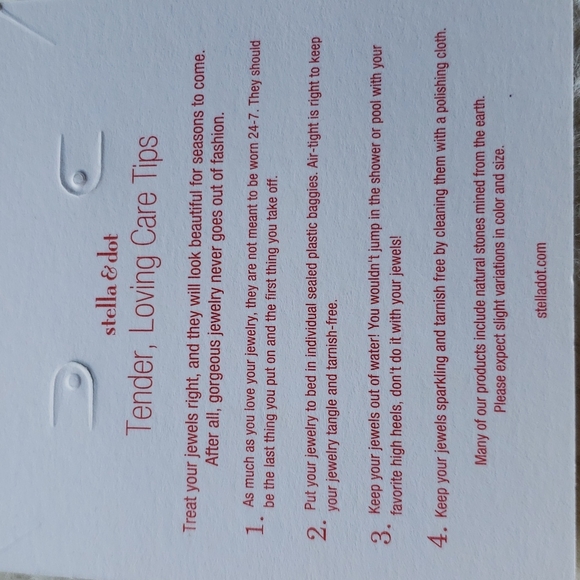 stella & dot
Tender, Loving Care Tips
Treat your jewels right, and they will look beautiful for seasons to come.
After all, gorgeous jewelry never goes out of fashion.
1. As much as you love your jewelry, they are not meant to be worn 24-7. They should
be the last thing you put on and the first thing you take off.
2. Put your jewelry to bed in individual sealed plastic baggies. Air-tight is right to keep
your jewelry tangle and tarnish-free.
3. Keep your jewels out of water! You wouldn't jump in the shower or pool with your
favorite high heels, don't do it with your jewels!
4. Keep your jewels sparkling and tarnish free by cleaning them with a polishing cloth.
Many of our products include natural stones mined from the earth.
Please expect slight variations in color and size.
stelladot.com